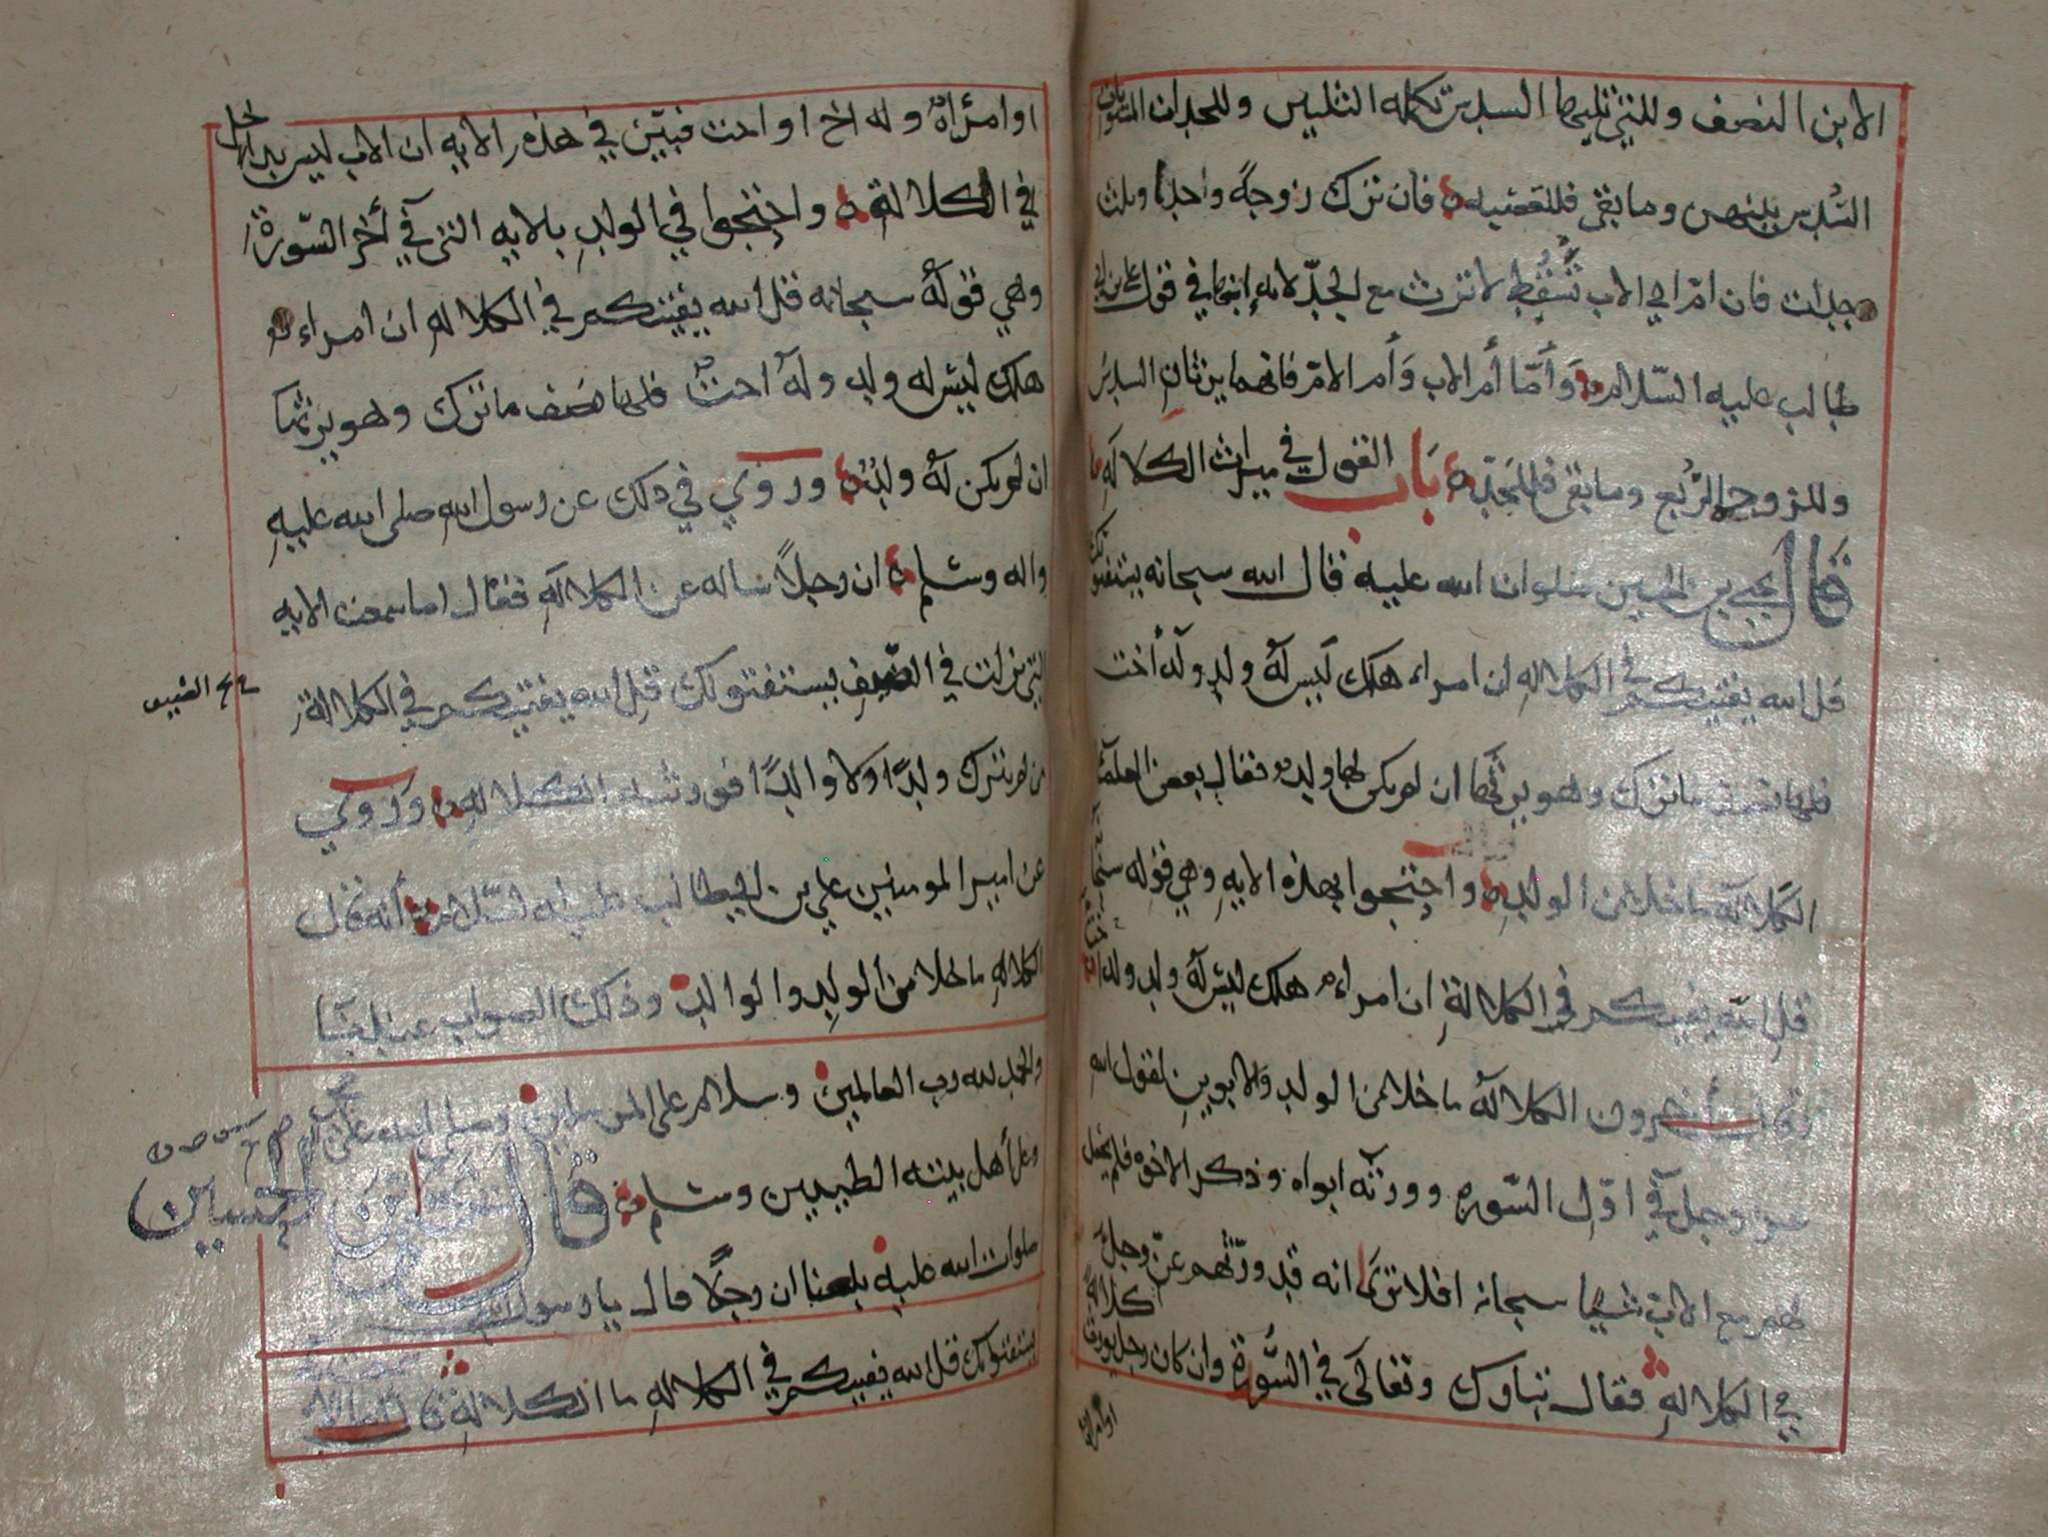 الابن النصف وللتي تليها السدس تكمله الثلثين وللجدات
السدس بينهن وما بقي فللعصبه فان ترك زوجةً وثلث
جدات فان ام ابي الاب تسقط لا ترث مع الجد لانه ابنها في قول علي بن ابي
طالب عليه السلام وَأَمّا أم الاب وَأم الام فانهما يرثان السدس
وللزوجه الربع وما بقي فللجد بَاب القول في ميراث الكلاله
قال يحيى بن الحسين صلوات الله عليه قال الله سبحانه يستفتونك
قل الله يفتيكم في الكلاله ان امراء هلك ليس لَهُ ولد وله أخت
فلها نصف ما ترك وهو يرثها ان لم يكن لها ولد فقال بعض العلماء
الكلالَه ما خلا من الولد واحتجوا بهذه الايه وهي قوله سبحانه
قل اللّه يفتيكم في الكلالةِ ان امراء هلك ليس لَهُ ولد وله اخت
وقال أخرون الكلالَه ما خلا من الولد والابوين لقول الله
عز وجل في اوّل السّوره وورثَه ابواه وذكر الاخوه فلم يجعل
لهم مع الاب شيا سبحانه افلا ترى انه قد ورّثهم عزّ وجلّ
في الكلاله فقال تبارك وتعالى في السُّورةِ وان كان رجل يورث كلالةً
او امراة
او امرَأةٌ وله اخ او اخت فبيّن في هذه الايه ان الاب ليس بداخل
في الكلالةِ واحتجوا في الولدِ بالايه التي في أخر السّورة
وهي قولهُ سبحانه قل الله يفتيكم في الكلاله ان امراء
هلك ليس له ولد ولهُ اختٌ فلها نصف ما ترك وهو يرثها
ان لم يكن لهُ ولدٌ ورُوي في ذلك عن رسول الله صلى الله عليهِ
واله وسلم ان رجلاً ساله عن الكلالَهِ فقال اما سمعت الايه
التي نزلت في الصّيفِ يستفتونك قل الله يفتيكم في الكلالة
من لم يترك ولدًا ولا والدًا فورثته الكلاله ورُوي
عن امير المومنين علي بن ابي طالب عليه السّلام أنه قال
الكلالهِ ما خلا من الولدِ والوالد وذلك الصواب عندنا
والحمد لله رب العالمين وسلام على المرسلين وصلى الله على
وعلى أهل بيته الطيبين وسلم قال يحيى بن الحسين
صلوات الله عليه بلغنا ان رجلًا قال يا رسول الله
يستفتونك قل الله يفتيكم في الكلالهِ ما الكلاله